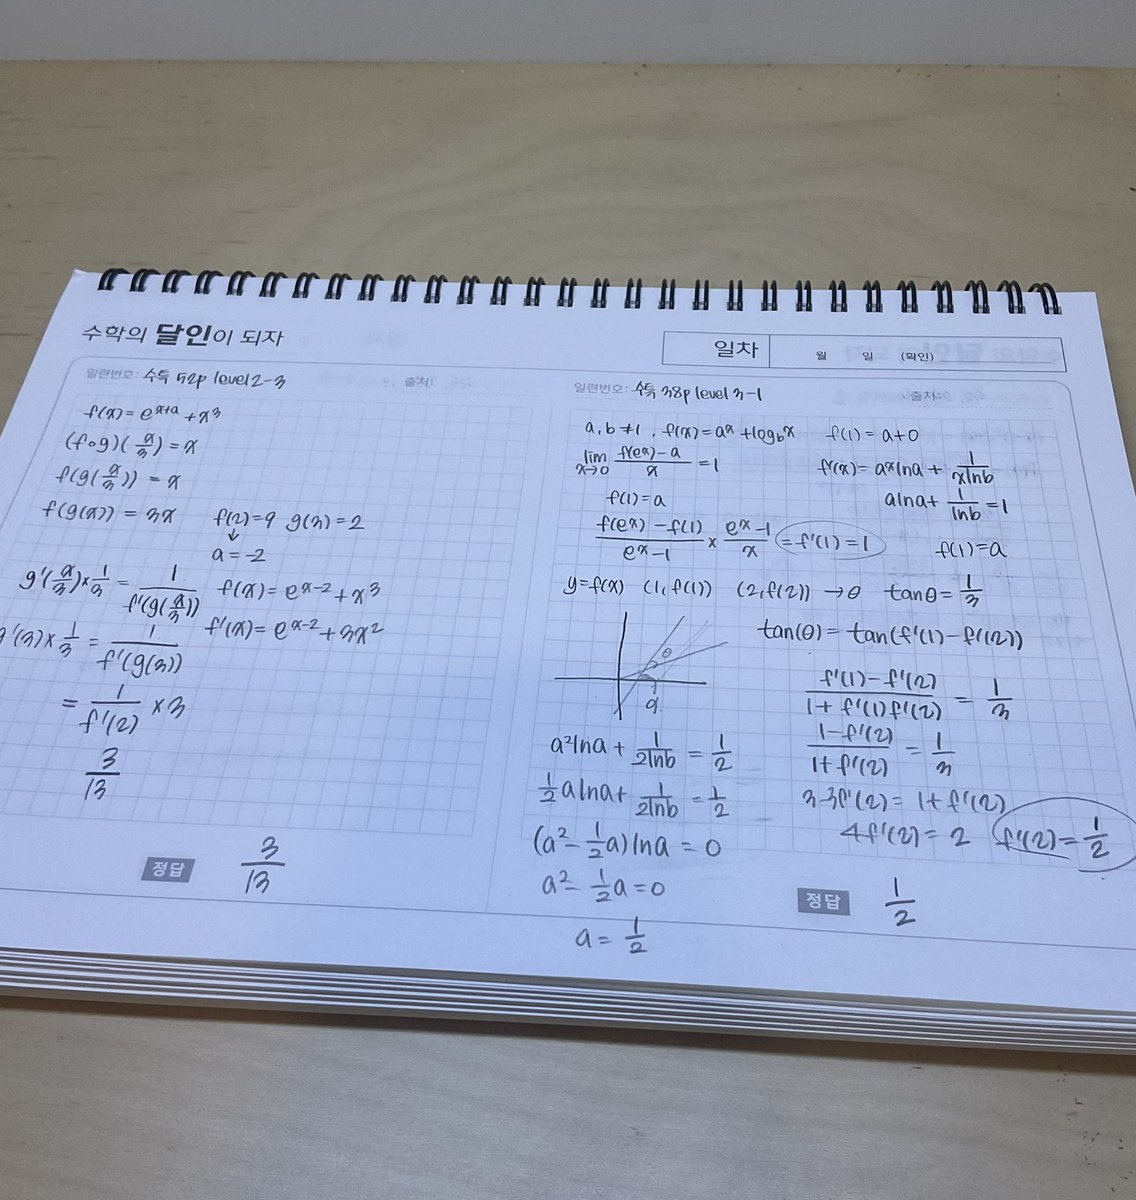 수학의 달인이 되자
일차 월 일 (확인)
일련번호: 수특 52p level2-3 출처:
f(x) = e^{x+a} + x³
(f∘g)(x/3) = x
f(g(x/3)) = x
f(g(x)) = 3x f(2)=9 g(3)=2
↓
a = -2
g'(x/3) × 1/3 = 1/f'(g(x/3)) f(x) = e^{x-2} + x³
g'(3) × 1/3 = 1/f'(g(3)) f'(x) = e^{x-2} + 3x²
= 1/f'(2) × 3
3/13
정답 3/13
일련번호: 수특 38p level 3-1 출처:
a, b ≠ 1, f(x) = a^x + log_b x f(1) = a+0
lim x→0 (f(e^x) - a)/x = 1 f'(x) = a^x lna + 1/(x lnb)
f(1) = a alna + 1/lnb = 1
(f(e^x) - f(1))/(e^x - 1) × (e^x - 1)/x = f'(1) = 1 f(1) = a
y = f(x) (1, f(1)) (2, f(2)) → θ tanθ = 1/3
tan(θ) = tan(f'(1) - f'(2))
θ
α
(f'(1) - f'(2))/(1 + f'(1)f'(2)) = 1/3
(1 - f'(2))/(1 + f'(2)) = 1/3
3-3f'(2) = 1 + f'(2)
4f'(2) = 2 f'(2) = 1/2
a²lna + 1/(2lnb) = 1/2
1/2 alna + 1/(2lnb) = 1/2
(a² - 1/2 a) lna = 0
a² - 1/2 a = 0
a = 1/2
정답 1/2